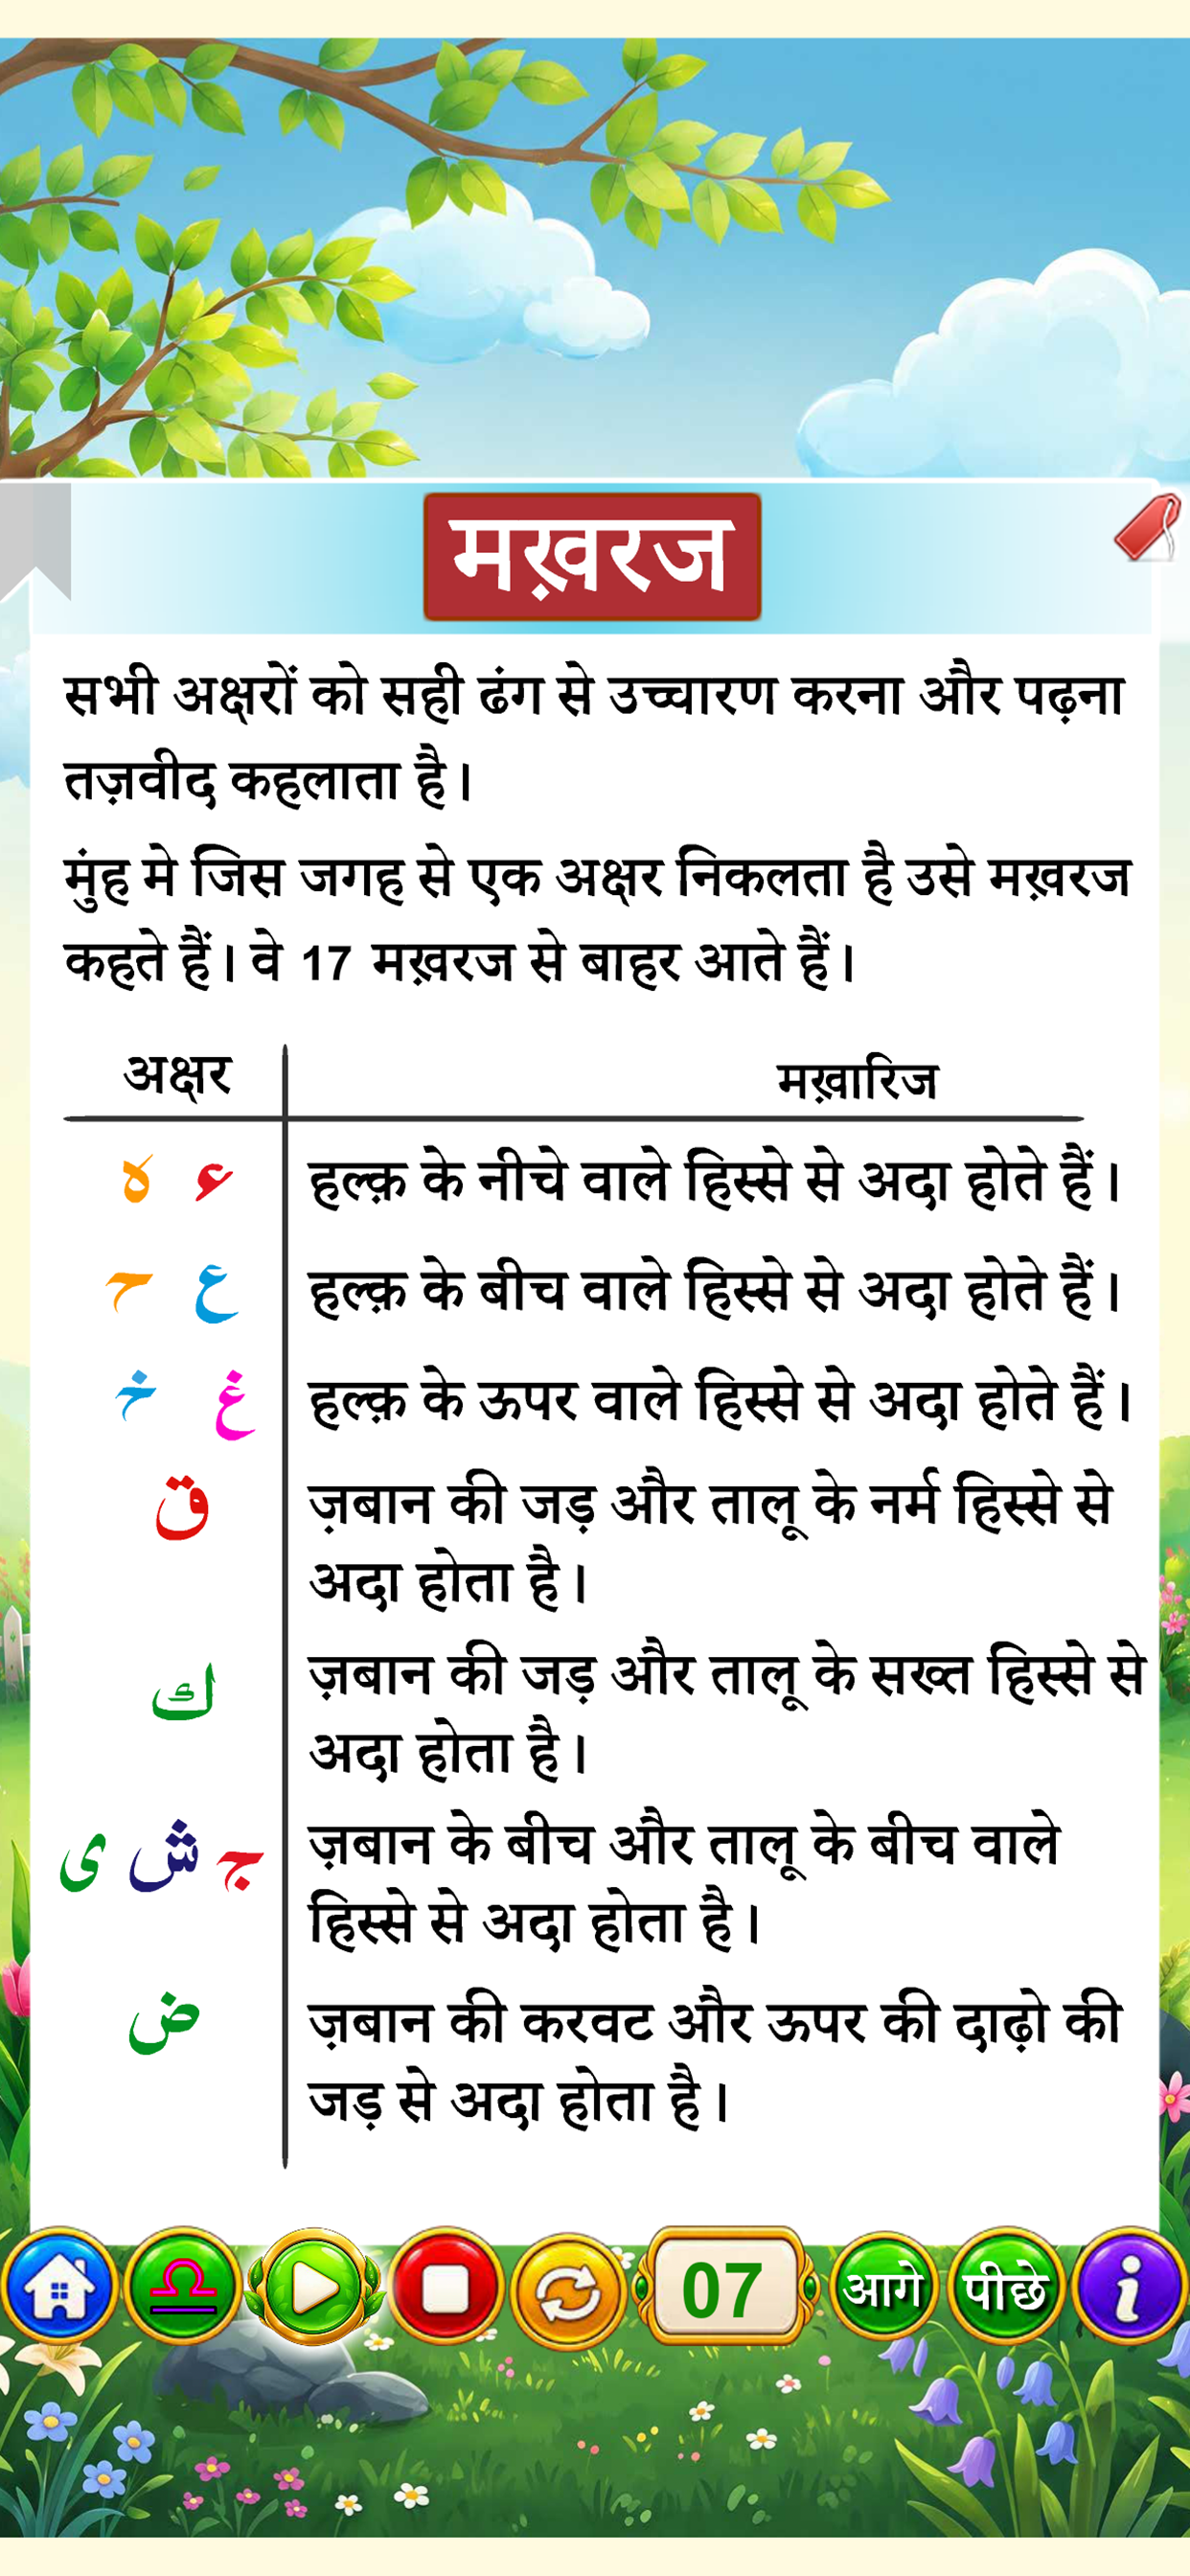 मख़रज
सभी अक्षरों को सही ढंग से उच्चारण करना और पढ़ना
तज़वीद कहलाता है।
मुंह मे जिस जगह से एक अक्षर निकलता है उसे मख़रज
कहते हैं। वे 17 मख़रज से बाहर आते हैं।
अक्षर मख़ारिज
ء ه हल्क़ के नीचे वाले हिस्से से अदा होते हैं।
ع ح हल्क़ के बीच वाले हिस्से से अदा होते हैं।
غ خ हल्क़ के ऊपर वाले हिस्से से अदा होते हैं।
ق ज़बान की जड़ और तालू के नर्म हिस्से से
अदा होता है।
ك ज़बान की जड़ और तालू के सख्त हिस्से से
अदा होता है।
ج ش ى ज़बान के बीच और तालू के बीच वाले
हिस्से से अदा होता है।
ض ज़बान की करवट और ऊपर की दाढ़ो की
जड़ से अदा होता है।
07 आगे पीछे i